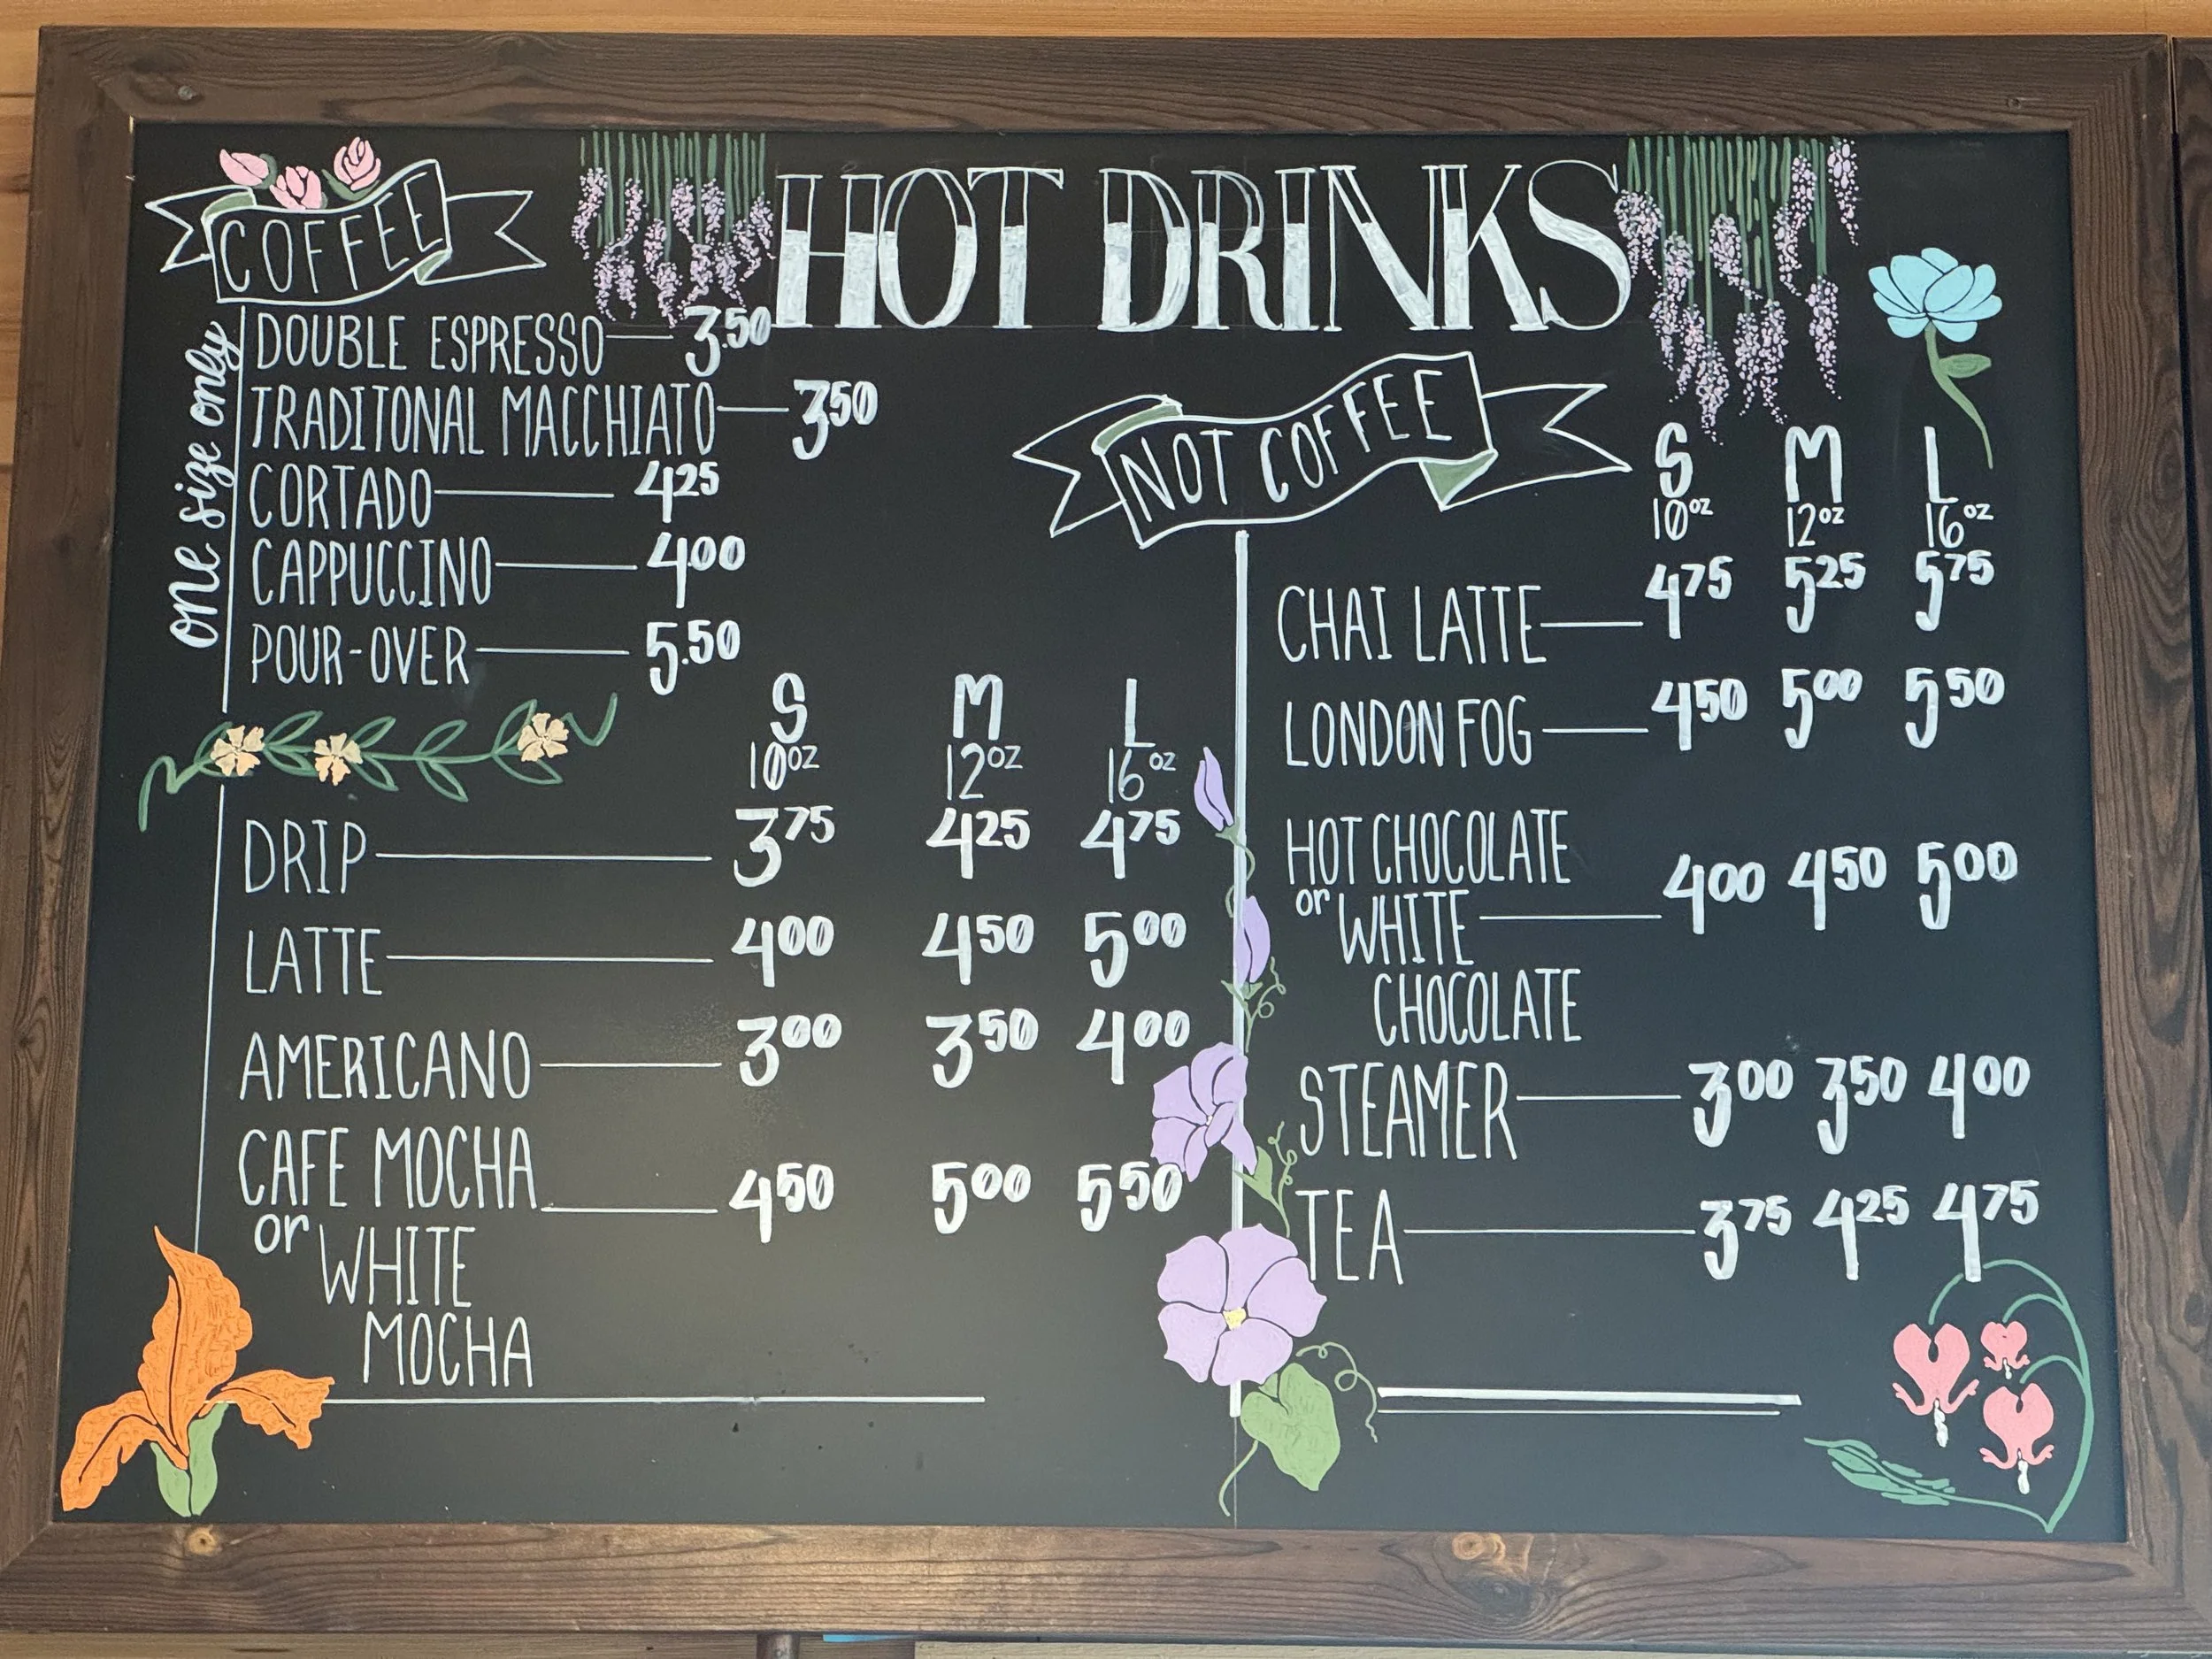 HOT DRINKS
COFFEE
one size only
DOUBLE ESPRESSO 3.50
TRADITONAL MACCHIATO 3.50
CORTADO 4.25
CAPPUCCINO 4.00
POUR-OVER 5.50
S M L
10oz 12oz 16oz
DRIP 3.75 4.25 4.75
LATTE 4.00 4.50 5.00
AMERICANO 3.00 3.50 4.00
CAFE MOCHA 4.50 5.00 5.50
or WHITE
MOCHA
NOT COFFEE
S M L
10oz 12oz 16oz
CHAI LATTE 4.75 5.25 5.75
LONDON FOG 4.50 5.00 5.50
HOT CHOCOLATE 4.00 4.50 5.00
or WHITE
CHOCOLATE
STEAMER 3.00 3.50 4.00
TEA 3.75 4.25 4.75